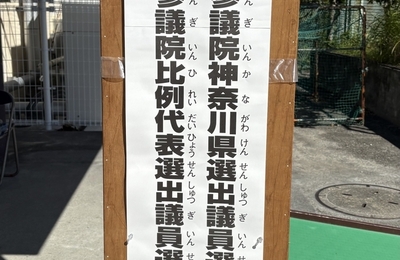 参議院神奈川県選出議員選
んぎいんかながわけんせんしゅつぎいんせ
参議院比例代表選出議員選
んぎいんひれいだいひょうせんしゅつぎいんせ